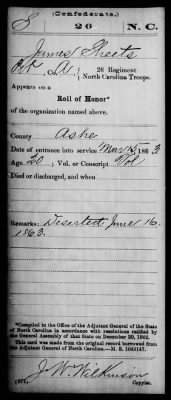 (Confederate.)
S 26 N.C.
James Sheets
Pvt, Co. A, 26 Regiment
North Carolina Troops.
Appears on a
Roll of Honor*
of the organization named above.
County Ashe
Date of entrance into service Mar 14, 1863.
Age 20; Vol. or Conscript Vol
Died or discharged, and when
Remarks: Deserted June 16.
1863.
*Compiled in the Office of the Adjutant General of the State
of North Carolina in accordance with resolutions ratified by the
General Assembly of that State on December 20, 1862.
This card was made from the original record borrowed from
the Adjutant General of North Carolina.—M. S. 1043147.
J. W. Wilkinson
(671) Copyist.